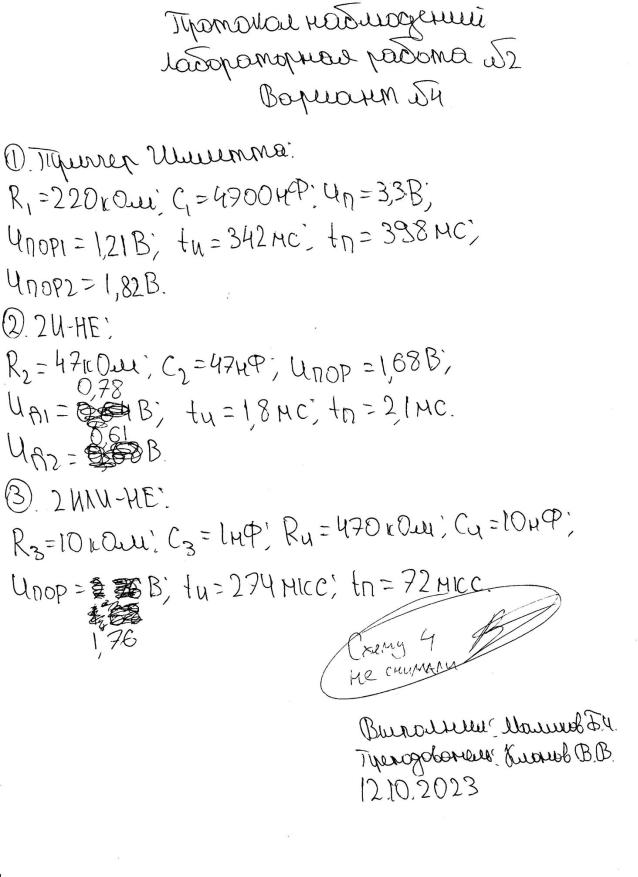 Протокол наблюдений
лабораторная работа №2
Вариант №4
① Триггер Шмитта:
R₁=220кОм; C₁=4700нФ; Uп=3,3В;
Uпор1=1,21В; tи=342мс; tп=398мс;
Uпор2=1,82В.
② 2И-НЕ:
R₂=47кОм; C₂=47нФ; Uпор=1,68В;
0,78
UД1= В; tи=1,8мс; tп=2,1мс.
0,61
UД2= В.
③ 2ИЛИ-НЕ:
R₃=10кОм; C₃=1нФ; R₄=470кОм; C₄=10нФ;
Uпор= В; tи=274мкс; tп=72мкс.
1,76
Схему 4
не снимали
Выполнил: Маликов Б.И.
Преподователь: Кланов В.В.
12.10.2023